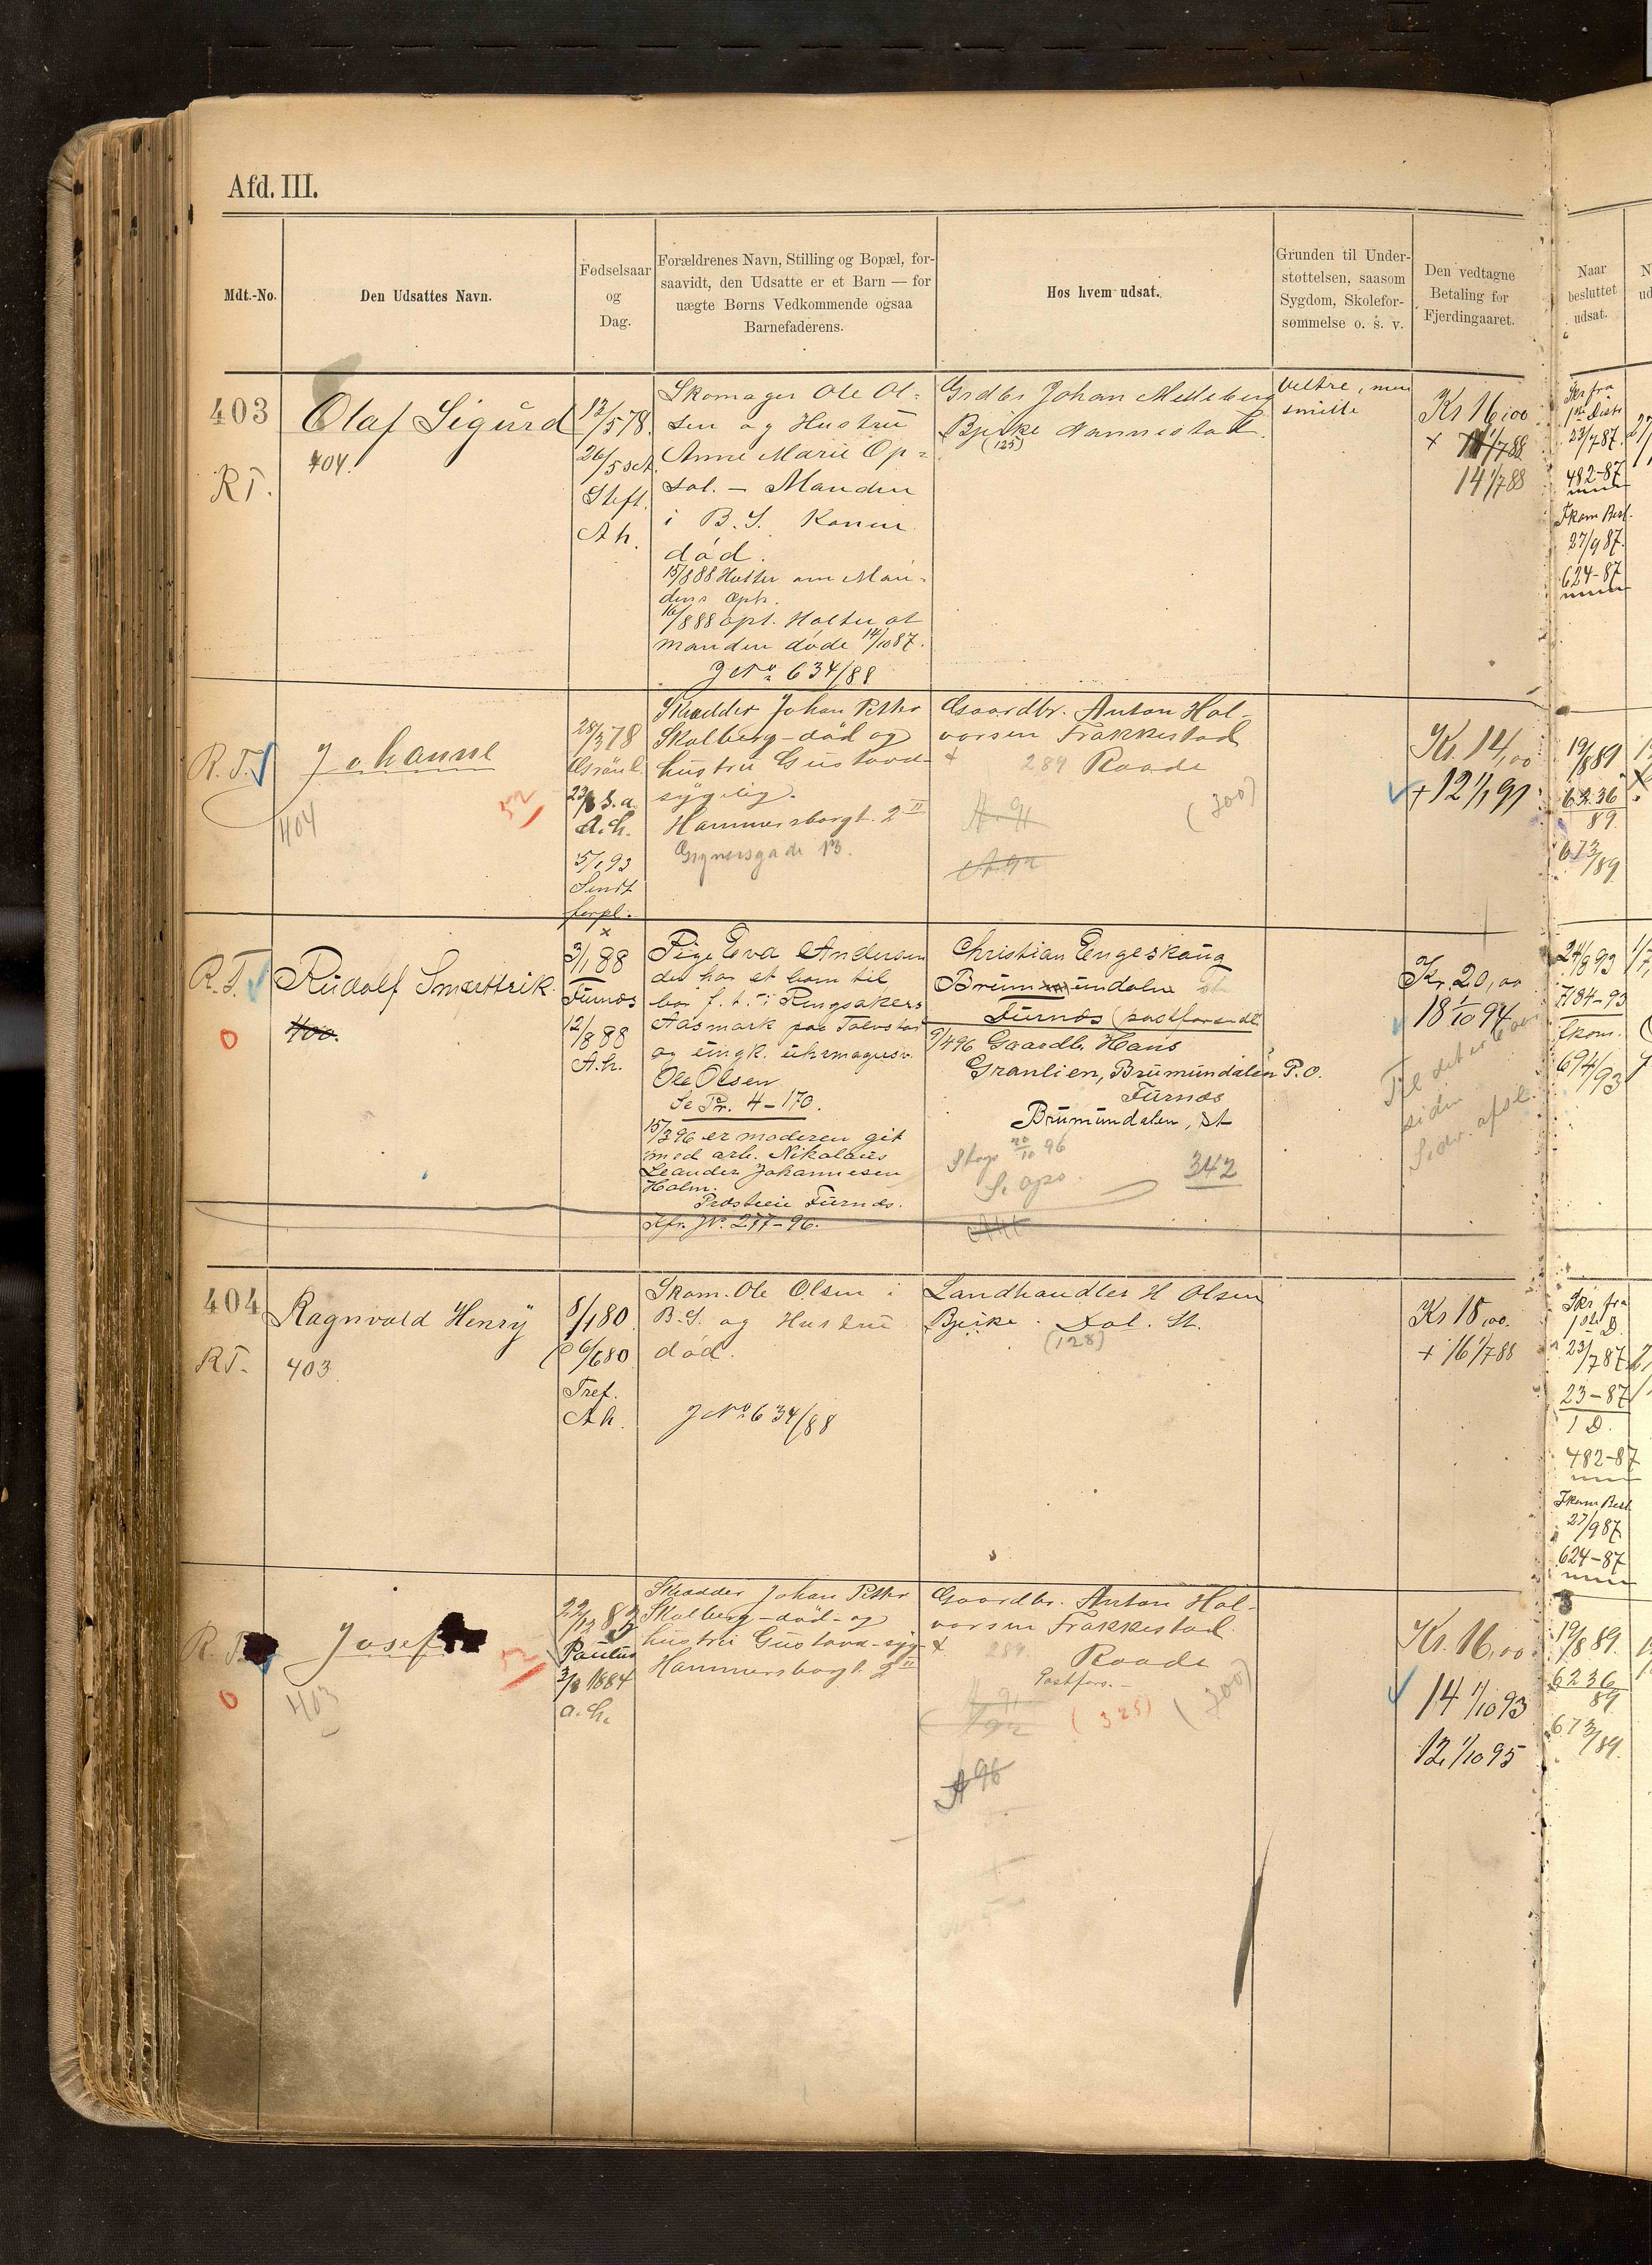 Afd. III.
Mdt.-No.
Den Udsattes Navn.
Fødselsaar
og
Dag.
Forældrenes Navn, Stilling og Bopæl, for-
saavidt, den Udsatte er et Barn — for
uægte Børns Vedkommende ogsaa
Barnefaderens.
Hos hvem udsat.
Grunden til Under-
støttelsen, saasom
Sygdom, Skolefor-
sømmelse o. s. v.
Den vedtagne
Betaling for
Fjerdingaaret.
Naar
besluttet
udsat.
403
R T.
Olaf Sigurd
404.
12/5 78.
26/5 s.A.
Stift.
A h.
Skomager Ole Ol-
sen og Hustru
Anne Marie Op-
sal. — Manden
i B. S. Konen
død.
15/8 88 Holter om Man-
dens Oph.
16/8 88 opl. Holter at
manden døde 14/10 87.
J No 634/88
Grdbr Johan Melleberg
Bjerke Nannestad.
(125)
Kr 16,00
+ 14 1/7 88
14 1/7 88
Skr fra
1ste Distr
23/7 87.
482-87
Fkom Besl.
27/9 87.
624-87
R. T.
Johanne
404
52
28/3 78
Grönl.
A.h.
5/1 93
Sendt
forpl.
Skrædder Johan Petter
Skalberg - död og
hustru Gustava-
sygelig.
Hammersborgt. 2 II
Grønersgade 13.
Gaardbr. Anton Hal-
vorsen Frakkestad
+ 289 Raade
(300)
A. 91
A. 92
Kr. 14,00
+ 12 1/1 91
19/8 89
6236
89.
673/89
R. T.
0
Rudolf Smærttrik
400.
x
3/1 88
Furnæs
12/8 88
A.h.
Pige Eva Andersen
der har et barn til
bor f. t. i Ringsakers
Aasmark paa Tolvstad
og ungk. uhrmagersv.
Ole Olsen
Se Pr. 4-170.
15/3 96 er moderen git
med arb. Nikolaus
Leander Johannesen
Holm.
Præsteeie Furnæs.
Kfr. J No. 277-96.
Christian Engeskaug
Brumundalen St
Furnæs (postforendt)
9/4 96 Gaardb. Hans
Granlien, Brumundalen P.O.
Furnæs
Brumundalen, St
20/10 96
342
Kr. 20,00
18 1/10 94
24/8 93
7184-93
fkom.
694/93
404
RT.
Ragnvald Henry
403.
8/1 80
6/6 80
Tref.
A h.
Skom. Ole Olsen i
B.S. og Hustru
død.
J No 634/88
Landhandler H Olsen
Bjerke. Dal. St.
(128)
Kr 18,00.
+ 16 1/7 88
Skr. fra
1ste D.
23/7 87
23-87
1 D.
482-87
Fkom Besl.
27/9 87.
624-87
R. T.
0
Josef
403
52
22/12 83
Paulus
2/3 1884
a. h.
Skrædder Johan Petter
Skalberg - död - og
hustru Gustava - syg-
Hammersborgt. 2 II
Gaardbr. Anton Hal-
vorsen Frakkestad.
+ 289 Raade
Postfors. -
(325) (300)
A 91
A 92
A 96
Kr. 16,00
14 1/10 93
12 1/10 95
19/8 89.
6236
89
673/89.